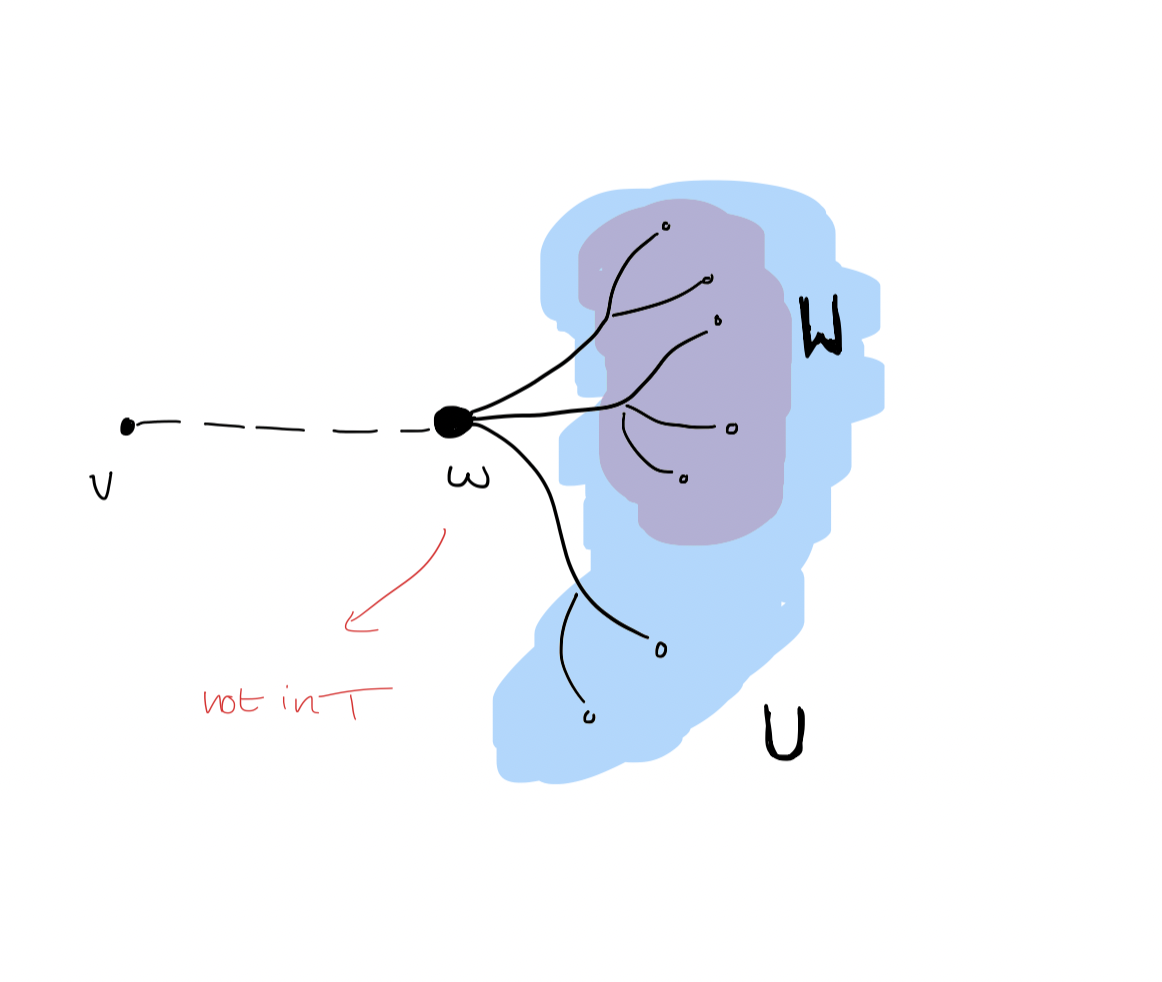 W
v
ω
not in T
U